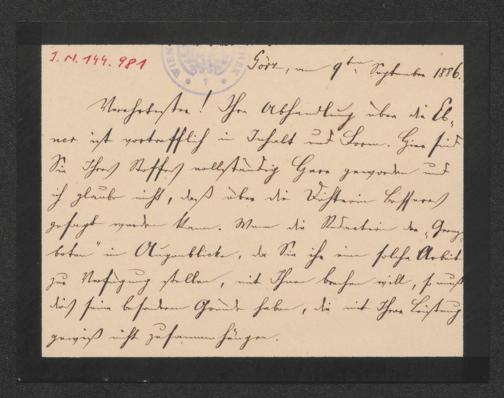 J. N. 144.981
Görz, am 9ten September 1886.
Verehrtester! Ihre Abhandlung über die Eb-
ner ist vortrefflich in Inhalt und Form. Hier sind
Sie Ihres Stoffes vollständig Herr geworden und
ich glaube nicht, daß über die Dichterin Besseres
gesagt werden kann. Wenn die Redaction der „Grenz-
boten" im Augenblicke, da Sie ihr eine solche Arbeit
zur Verfügung stellen, mit Ihnen brechen will, so muß
dies seine besonderen Gründe haben, die mit Ihrer Leistung
gewiß nicht zusammenhängen.